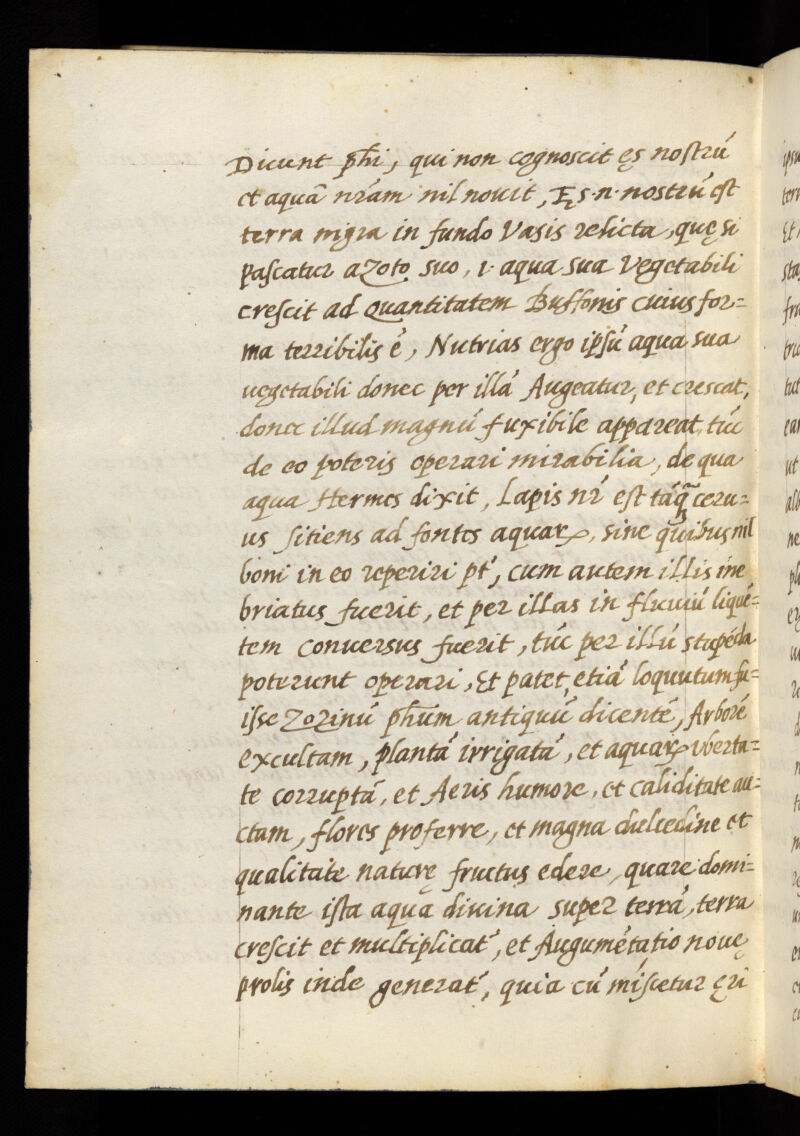 Dicunt phi, qui non cognoscit ęs nostrū
et aquā nr̄am nil novit, Ęs·n·nostrū est
terra nigra in fundo Vasis relicta, quę si
pascatur azoto suo, i· aqua sua Vegetabili
crescit ad Quantitatem Buffonis cuius for=
ma terribilis ē, Nutrias ergo ipsū aqua sua
vegetabili donec per illā Augeatur, et crescat,
donec illud magnū fuxibile appareat, tūc
de eo poteris operari mirabilia, de qua
aqua Hermes dixit, Lapis nr̄ est tāq̄ ceru=
us sitiens ad fontes aquaꝝ, sine quibus nil
boni in eo reperiri pt̄, cum autem illis ine
briatus fuerit, et per illas in fluviū liquē=
tem conversus fuerit, tūc per illū stupēda
poterunt operari, Et patet etiā loquutum fu=
isse Zorinū phum antiquū dicentē, Arborē
excultam, plantā irrigatā, et aquaꝝ vberta=
te corruptā, et Aeris humore, et caliditate au=
ctam, flores proferre, et magna dulcedine et
qualitate naturę fructus edere, quare domi=
nante ista aqua divina super terrā, terra
crescit et multiplicat̄, et Augumētatio novę
prolis inde generat̄, quia cū miscetur ęri